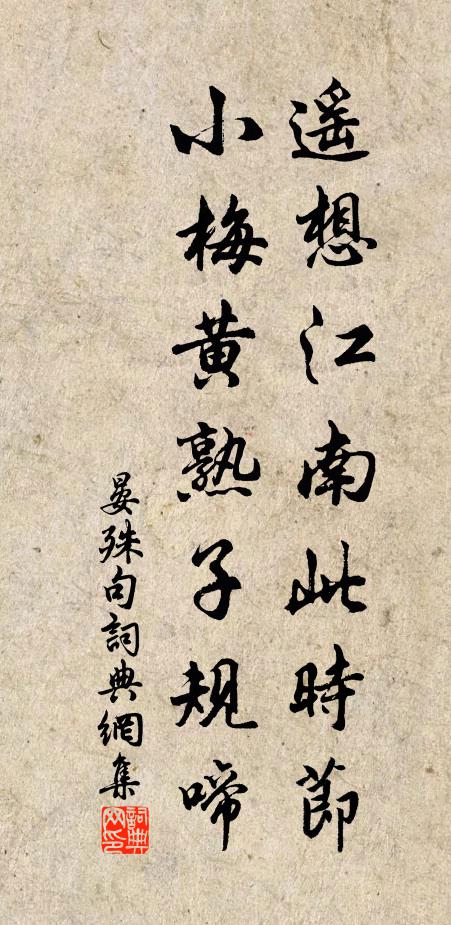 遥想江南此時節
小梅黄熟子規啼
晏殊句詞典網集
詞典网印